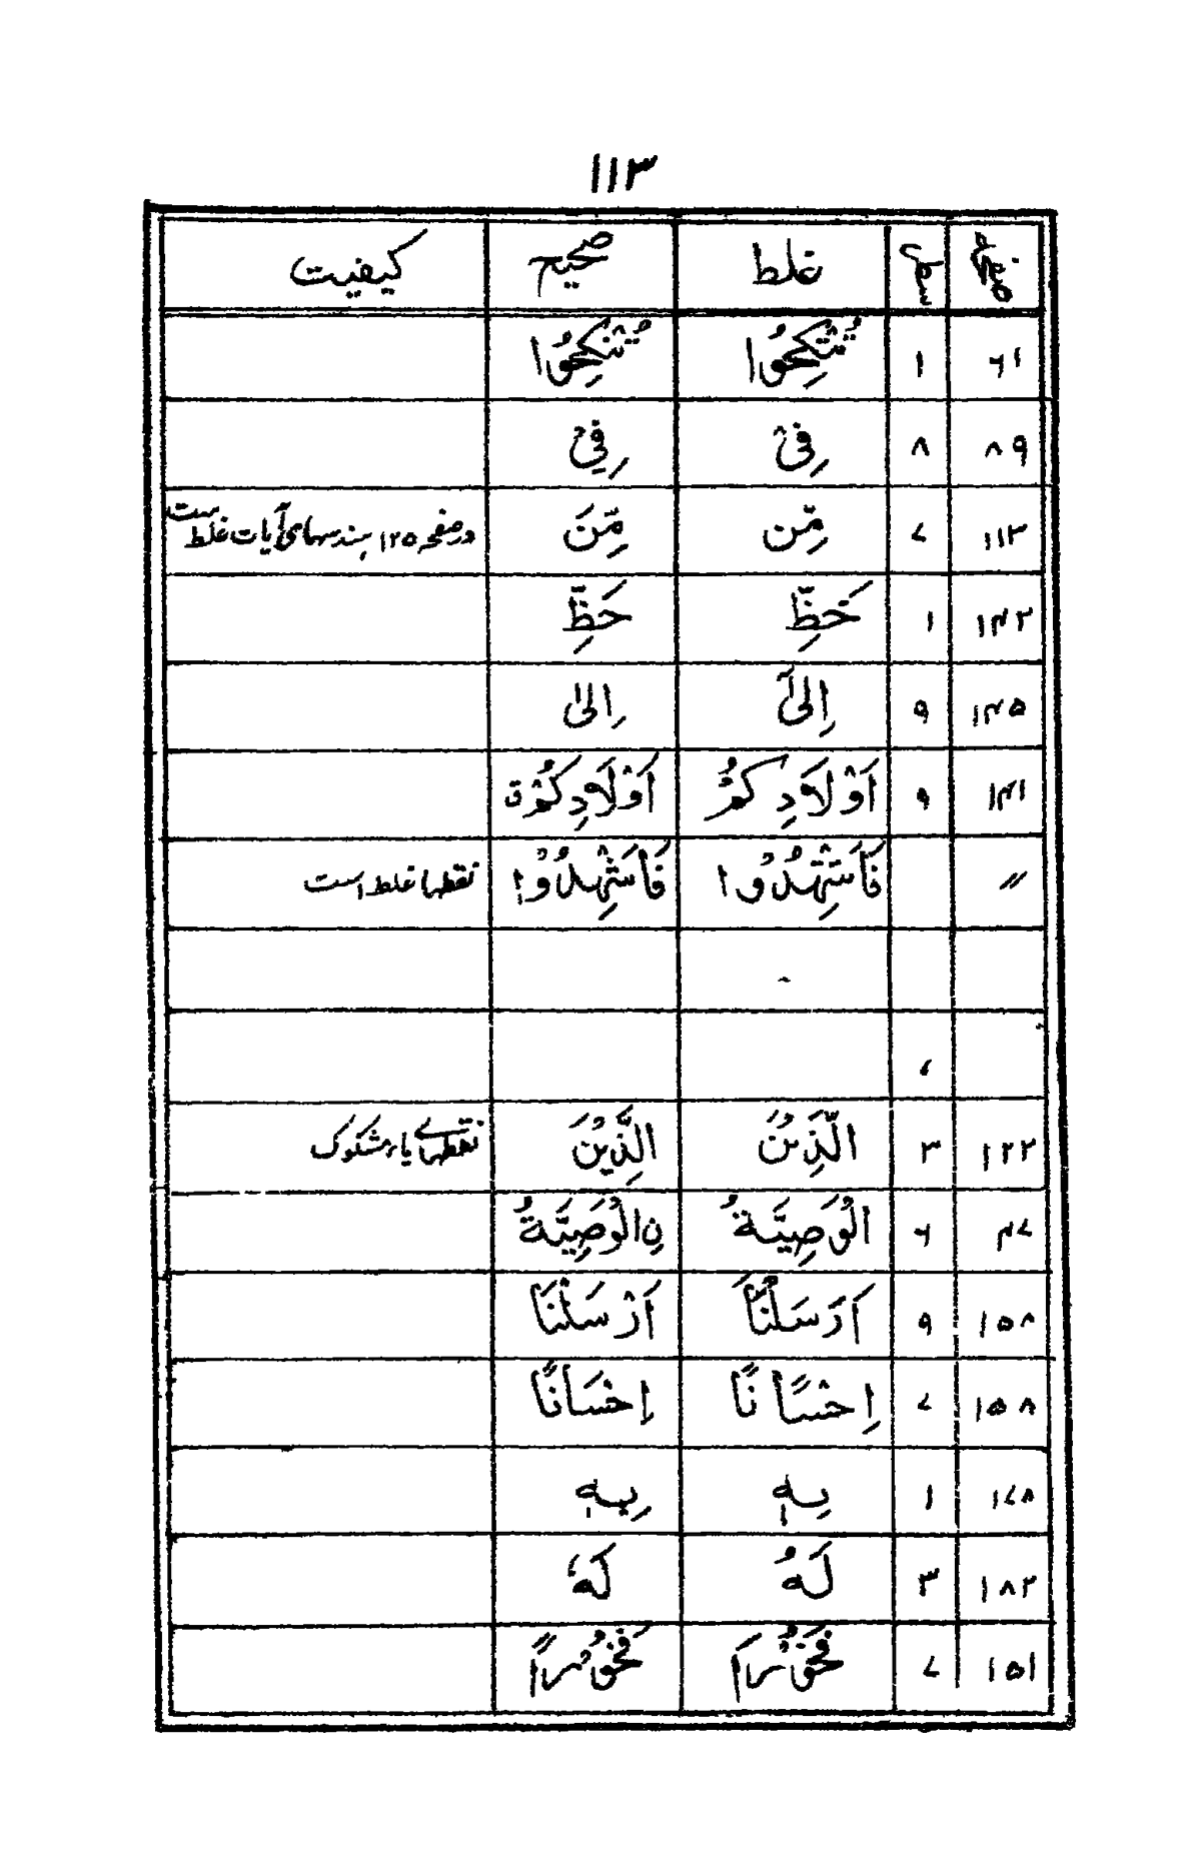 ۱۱۳
صفحہ سطر غلط صحیح کیفیت
۶۱ ۱ تُنْكِحُوا تُنْكِحُوْا
۸۹ ۸ فِیْ فِيْ
۱۱۳ ۷ مِّن مِّنَ در صفحہ ۱۲۵ ہندسہای آیات غلط ست
۱۴۲ ۱ حَظِّ حَظِّ
۱۴۵ ۹ اِلىٰٓ اِلىٰ
۱۴۱ ۹ اَوْلَادِكُمْ اَوْلَادِكُمْ ق
〃 فَاَشْهِدُوْا فَاشْهِدُوْا نقطہا غلط است
۱۲۲ ۳ الَّذِيْنَ الَّذِيْنَ نقطہای یاء مشکوک
۴۷ ۶ الْوَصِيَّةُ نِ الْوَصِيَّةُ
۱۵۸ ۹ اَرَسَلْنَا اَرْسَلْنَا
۱۵۸ ۷ اِحْسَانًا اِحْسَانًا
۱۷۸ ۱ بِهٖ بِهٖ
۱۸۲ ۳ لَهُ لَهٗ
۱۵۱ ۷ فَخُوْرًا فَخُوْرًا